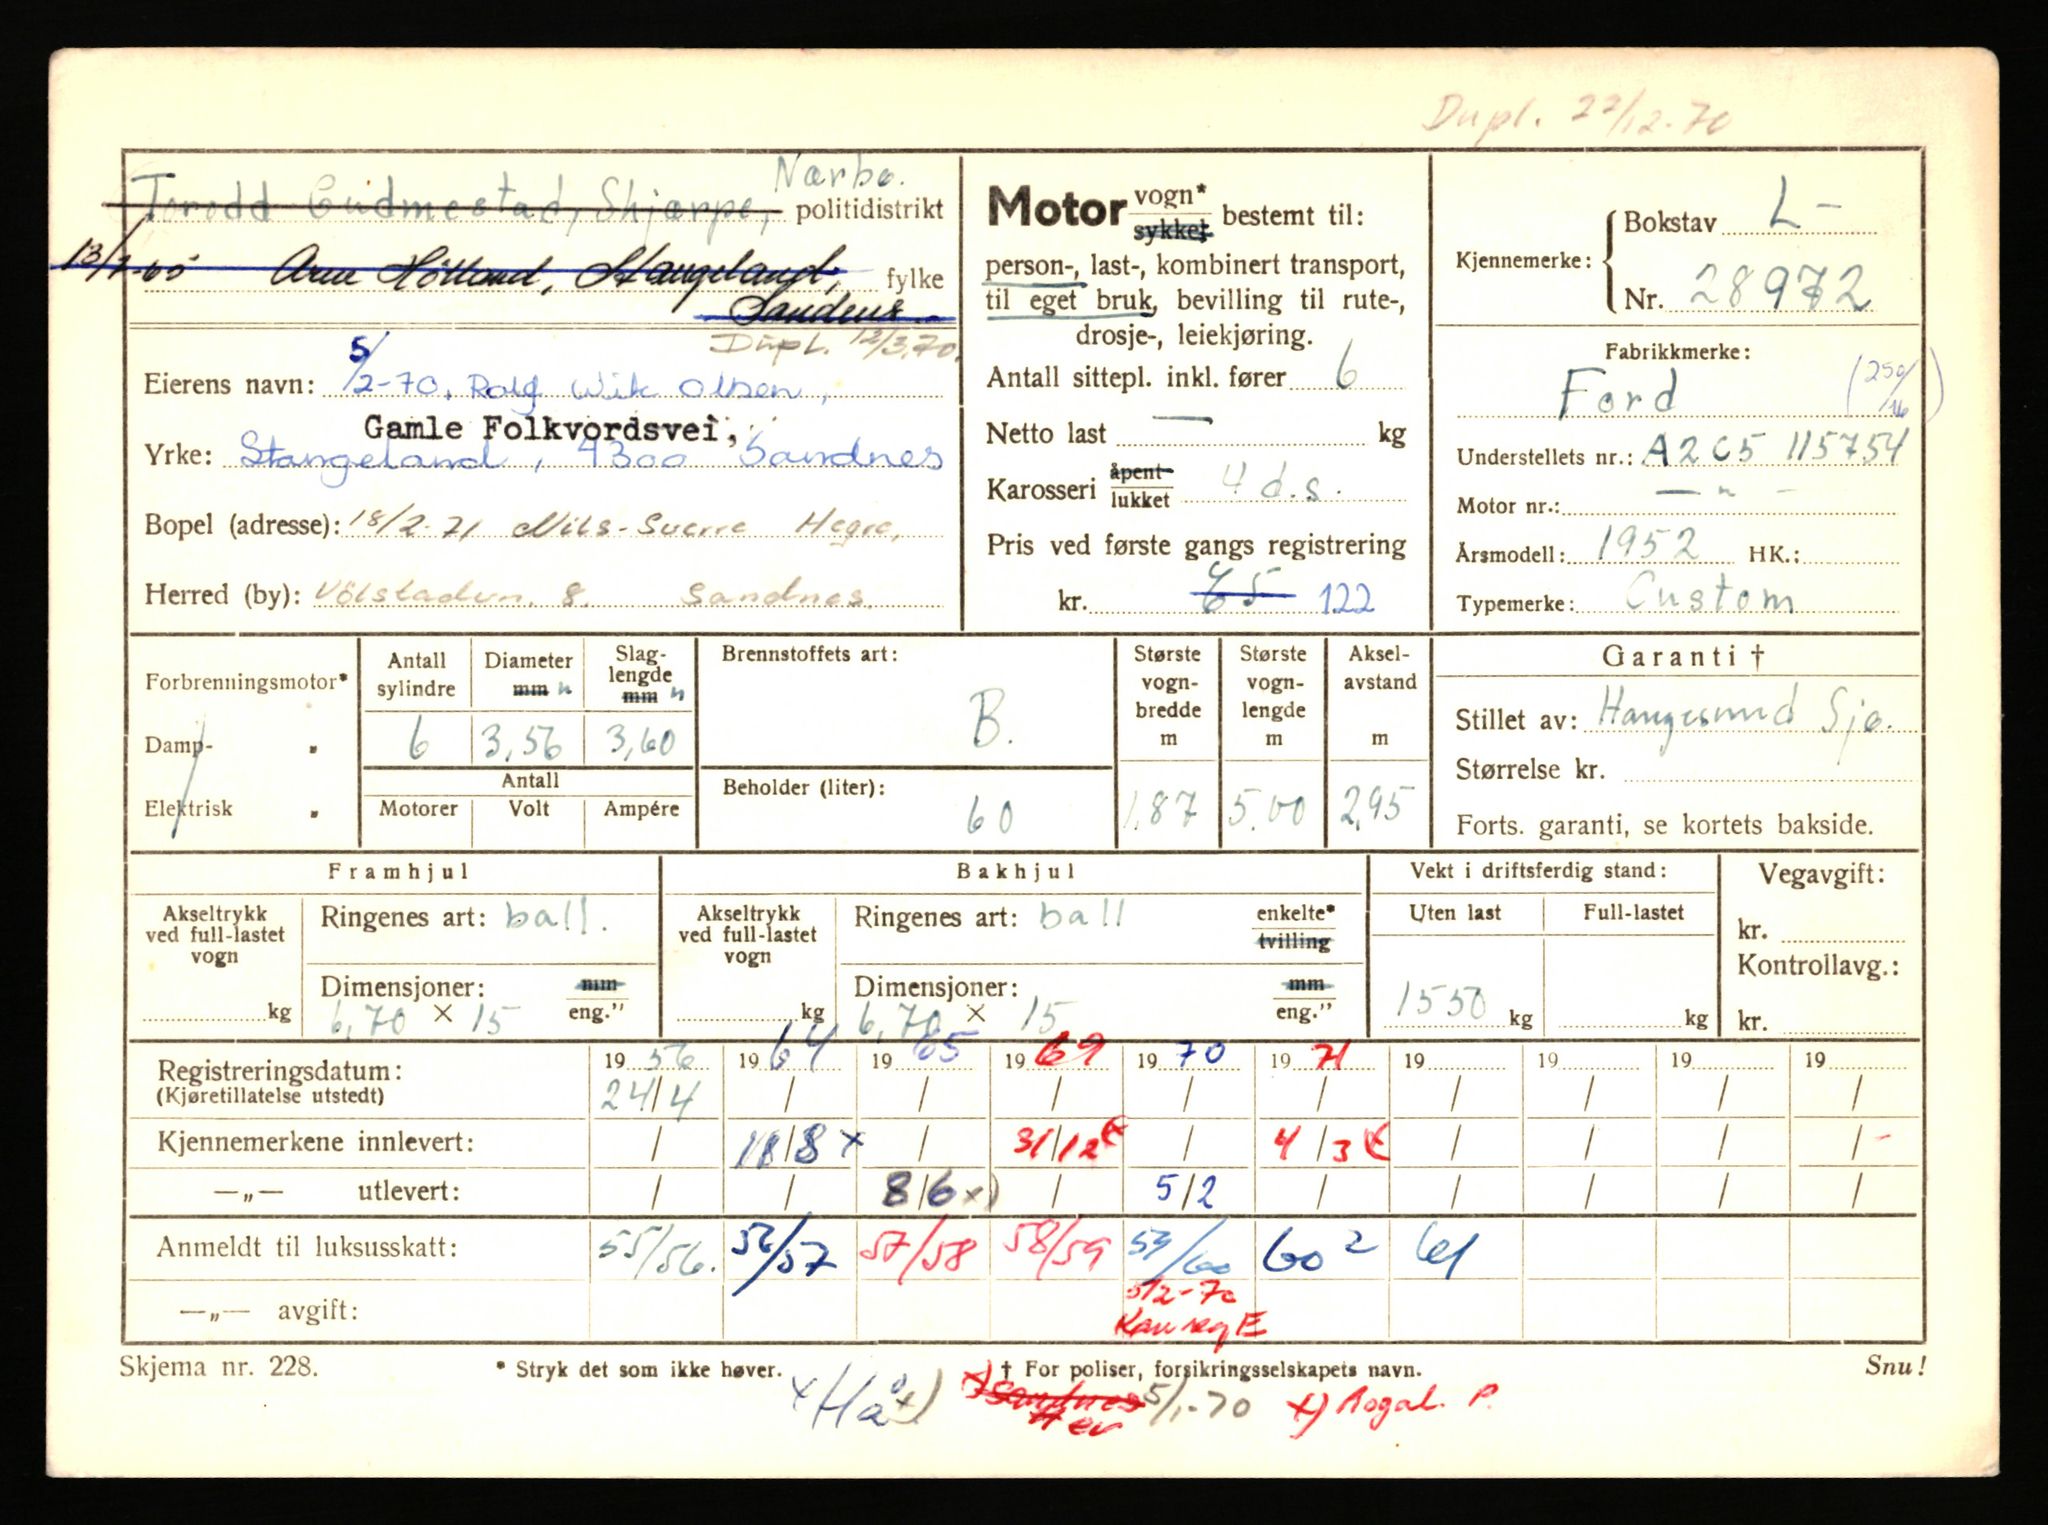 Dupl. 22/12-70
Torodd Gudmestad, Skjærpe, Nærbø. politidistrikt
13/7-65 Arne Høiland, Stangeland, fylke
Sandnes
Dupl. 12/3.70.
Eierens navn: 5/2-70. Rolf Wik Olsen,
Gamle Folkvordsvei,
Yrke: Stangeland, 4300 Sandnes
Bopel (adresse): 18/2-71 Nils-Sverre Hegre,
Herred (by): Vølstadvn. 8. Sandnes.
Motor vogn* sykkel bestemt til:
person-, last-, kombinert transport,
til eget bruk, bevilling til rute-,
drosje-, leiekjøring.
Antall sittepl. inkl. fører 6
Netto last — kg
Karosseri åpent lukket 4 d.s.
Pris ved første gangs registrering
kr. 65 122
Kjennemerke: Bokstav L-
Nr. 28972
Fabrikkmerke:
Ford (250/16)
Understellets nr.: A2C5 115754
Motor nr.: — " -
Årsmodell: 1952 HK.:
Typemerke: Custom
Forbrenningsmotor*
Damp- "
Elektrisk "
Antall sylindre Diameter mm " Slaglengde mm "
6 3,56 3,60
Antall
Motorer Volt Ampére
Brennstoffets art:
B.
Beholder (liter):
60
Største vognbredde m
1,87
Største vognlengde m
5,00
Akselavstand m
2,95
Garanti †
Stillet av: Haugesund Sjø.
Størrelse kr.
Forts. garanti, se kortets bakside.
Framhjul
Akseltrykk ved full-lastet vogn
kg
Ringenes art: ball.
Dimensjoner: mm
6,70 × 15 eng."
Bakhjul
Akseltrykk ved full-lastet vogn
kg
Ringenes art: ball enkelte* tvilling
Dimensjoner: mm
6,70 × 15 eng."
Vekt i driftsferdig stand:
Uten last Full-lastet
1550 kg kg
Vegavgift:
kr.
Kontrollavg.:
kr.
Registreringsdatum: 19 56 19 64 19 65 19 69 19 70 19 71 19 19 19 19
(Kjøretillatelse utstedt) 24/4 / / / / / / / / /
Kjennemerkene innlevert: / 18/8 x / 31/12 / 4/3 / / / / -
—„— utlevert: / / 8/6 x) / 5/2 / / / / /
Anmeldt til luksusskatt: 55/56. 56/57 57/58 58/59 59/60 60 2 61
5/2-70
—„— avgift:
Skjema nr. 228. * Stryk det som ikke høver. † For poliser, forsikringsselskapets navn. Snu!
x Hå x) x) Sandnes 5/1-70 x) Rogal. P.